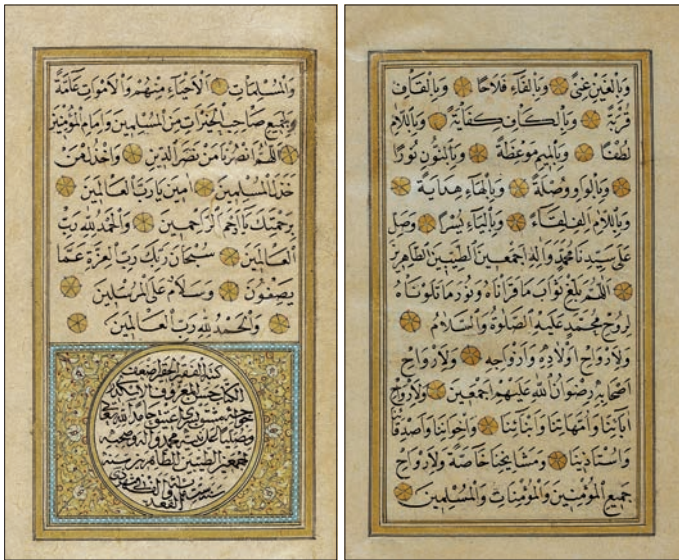 وَبِالْغَيْنِ غِنًى وَبِالْفَاءِ فَلَاحًا وَبِالْقَافِ
قُرْبَةً وَبِالْكَافِ كِفَايَةً وَبِاللَّامِ
لُطْفًا وَبِالْمِيمِ مَوْعِظَةً وَبِالنُّونِ نُورًا
وَبِالْوَاوِ وُصْلَةً وَبِالْهَاءِ هِدَايَةً
وَبِاللَّامِ أَلِف لِقَاءً وَبِالْيَاءِ يُسْرًا وَصَلِّ
عَلَى سَيِّدِنَا مُحَمَّدٍ وَآلِهِ أَجْمَعِينَ الطَّيِّبِينَ الطَّاهِرِينَ
اَللّٰهُمَّ بَلِّغْ ثَوَابَ مَا قَرَأْنَاهُ وَنُورَ مَا تَلَوْنَاهُ
لِرُوحِ مُحَمَّدٍ عَلَيْهِ الصَّلٰوةُ وَالسَّلَامُ
وَلِأَرْوَاحِ أَوْلَادِهِ وَأَزْوَاجِهِ وَلِأَرْوَاحِ
أَصْحَابِهِ رِضْوَانُ اللّٰهِ عَلَيْهِمْ أَجْمَعِينَ وَلِأَرْوَاحِ
آبَائِنَا وَأُمَّهَاتِنَا وَأَبْنَائِنَا وَإِخْوَانِنَا وَأَصْدِقَائِنَا
وَأُسْتَاذِينَا وَمَشَايِخِنَا خَاصَّةً وَلِأَرْوَاحِ
جَمِيعِ الْمُؤْمِنِينَ وَالْمُؤْمِنَاتِ وَالْمُسْلِمِينَ
وَالْمُسْلِمَاتِ اَلْأَحْيَاءِ مِنْهُمْ وَالْأَمْوَاتِ عَامَّةً
لِجَمِيعِ صَاحِبِ الْخَيْرَاتِ مِنَ الْمُسْلِمِينَ وَإِمَامِ الْمُؤْمِنِينَ
اَللّٰهُمَّ انْصُرْنَا مَنْ نَصَرَ الدِّينَ وَاخْذُلْ مَنْ
خَذَلَ الْمُسْلِمِينَ اٰمِينَ يَا رَبَّ الْعَالَمِينَ
بِرَحْمَتِكَ يَا أَرْحَمَ الرَّاحِمِينَ وَالْحَمْدُ لِلّٰهِ رَبِّ
الْعَالَمِينَ سُبْحَانَ رَبِّكَ رَبِّ الْعِزَّةِ عَمَّا
يَصِفُونَ وَسَلَامٌ عَلَى الْمُرْسَلِينَ
وَالْحَمْدُ لِلّٰهِ رَبِّ الْعَالَمِينَ
الفقير الحقير اضعف
حسن المعروف
حامدا لله تعالى
ومصليا على نبيه محمد وآله وصحبه
الطيبين الطاهرين